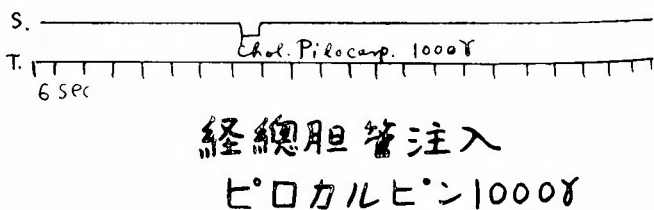 S.
Chol. Pilocarp. 1000γ
T.
6 sec
経總胆管注入
ピロカルピン1000γ